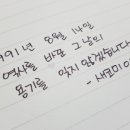 1991년 8월 14일
역사를 바꾼 그날의
용기를 잊지 않겠습니다
- 새로이